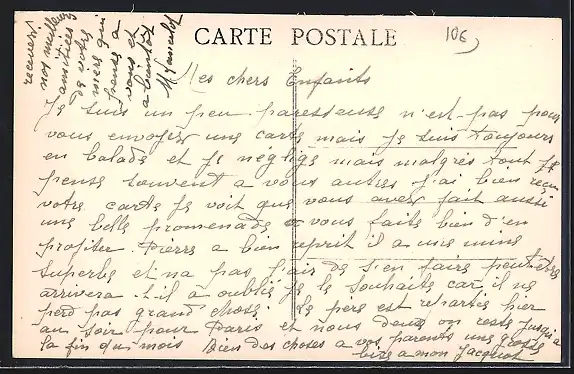 CARTE POSTALE
106
Mes chers Enfants
Je suis un peu paresseuse n'est-pas pour
vous envoyer une carte mais je suis toujours
en balade et je néglige mais malgrès tout je
pense souvent a vous autres j'ai bien reçu
votre carte je voit que vous avez fait aussi
une belle promenade vous faits bien d'en
profiter Pierre a bien reprit il a une mine
superbe et na pas l'air de s'en faire peut-être
arrivera t-il a oublié je le souhaite car il ne
perd pas grand chose le père est repartie hier
au soir pour Paris et nous deux on reste jusqu'a
la fin du mois Bien des choses a vos parents une grosse
bise a mon Jacquot
recevez
nos meilleurs
amitiées
de votre
mère qui
pense a
vous et
a bientôt
M